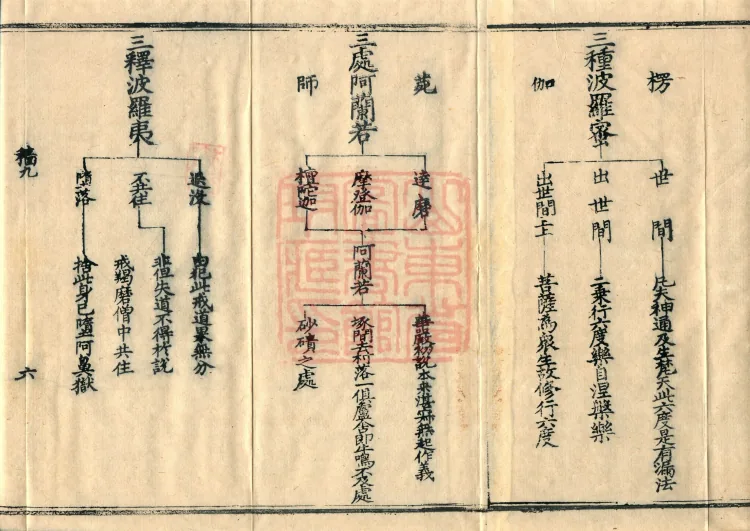 三種波羅蜜
楞
伽
世間
凡夫神通及生梵天此六度是有漏法
出世間
二乘行六度樂自涅槃樂
出世間上上
菩薩為眾生故修行六度
三處阿蘭若
苑
師
達磨
摩登伽
檀陀迦
阿蘭若
華嚴初說本來湛寂無起作義
塚間去村落一俱盧舍即牛鳴不及處
砂磧之處
三釋波羅夷
退沒
由犯此戒道果無分
不共住
非但失道不得於說
戒羯磨僧中共住
墮落
捨此身已墮阿鼻獄
稿九
六